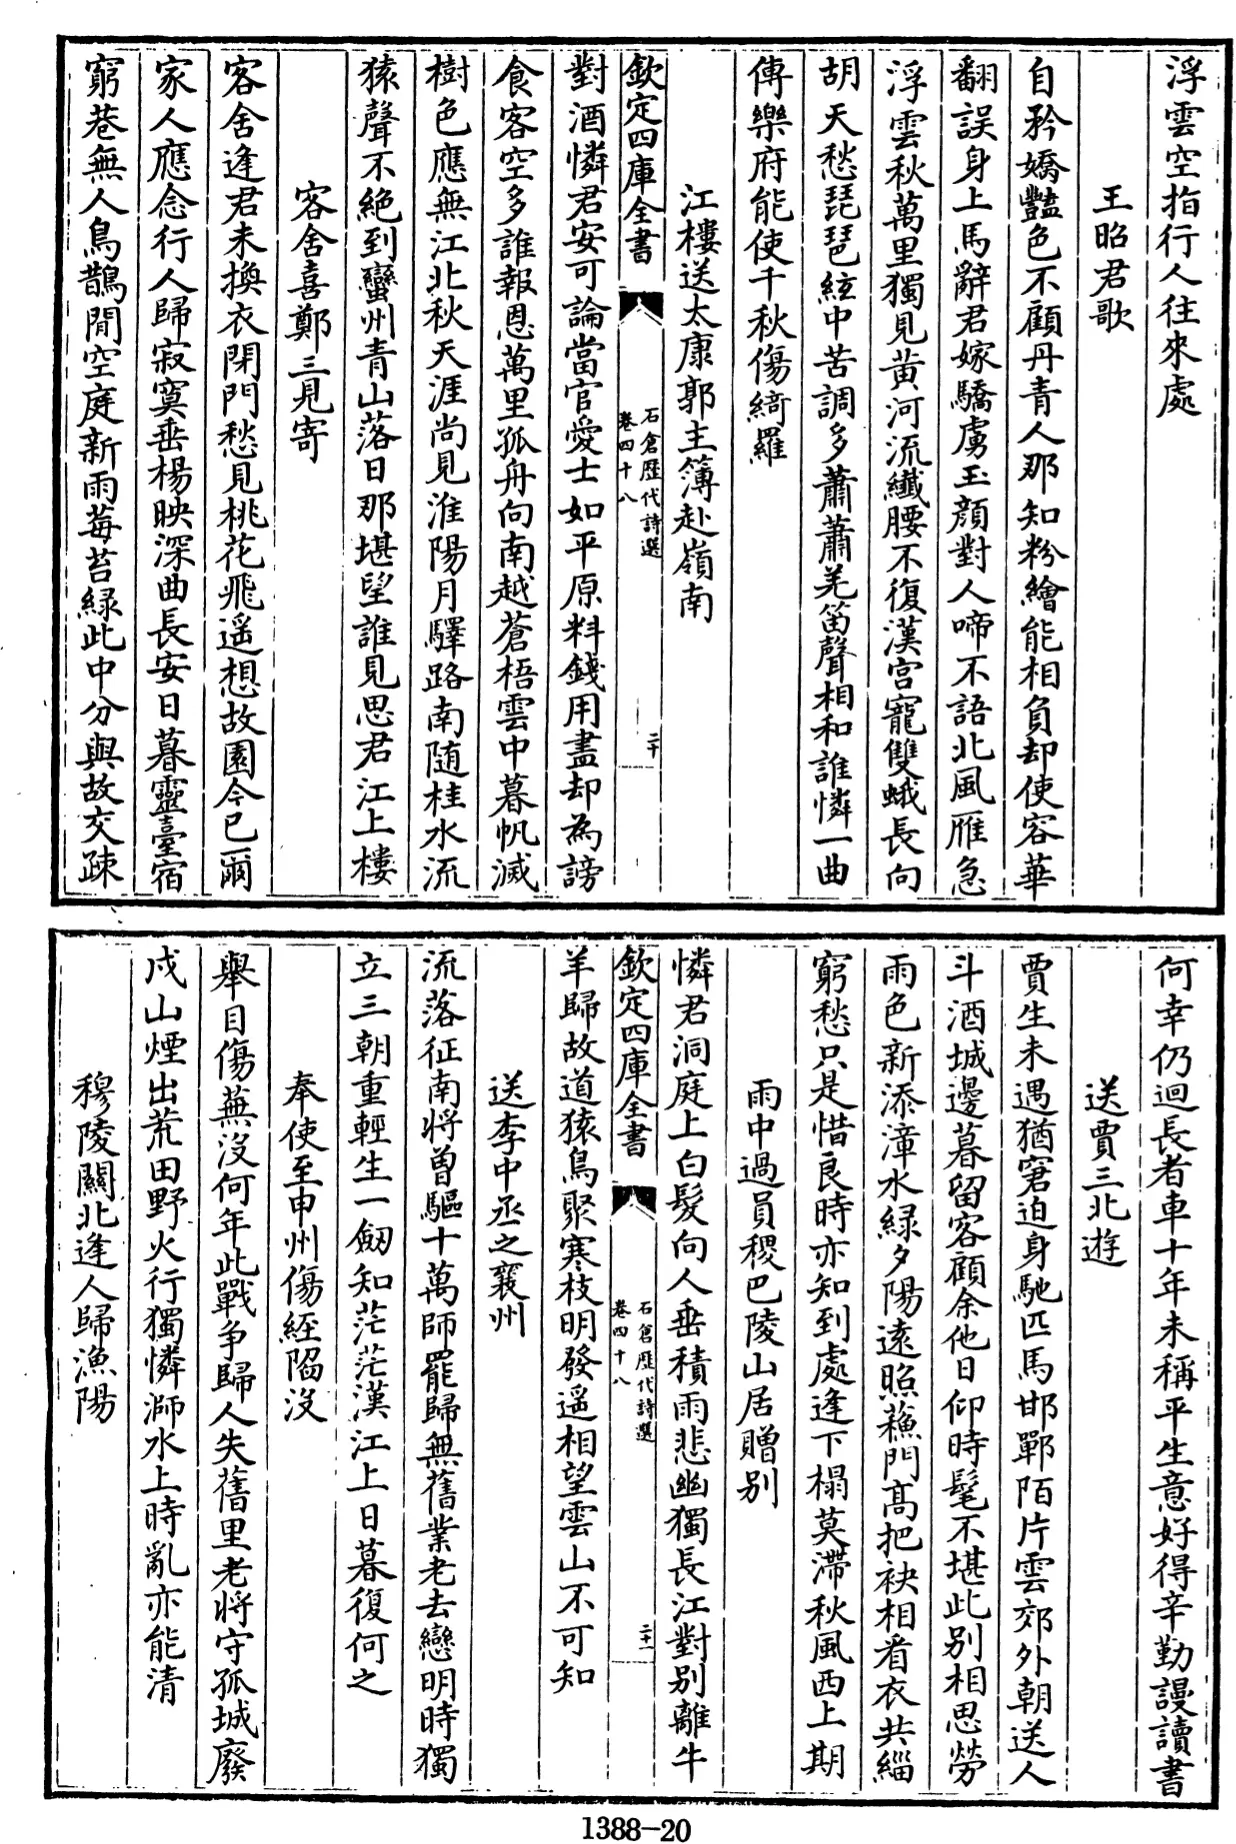 浮雲空指行人往來處
王昭君歌
自矜嬌豔色不顧丹青人那知粉繪能相負却使容華
翻誤身上馬辭君嫁驕虜玉顏對人啼不語北風雁急
浮雲秋萬里獨見黃河流纖腰不復漢宮寵雙蛾長向
胡天愁琵琶絃中苦調多蕭蕭羌笛聲相和誰憐一曲
傳樂府能使千秋傷綺羅
江樓送太康郭主簿赴嶺南
欽定四庫全書
石倉歷代詩選
卷四十八
二十
對酒憐君安可論當官愛士如平原料錢用盡却為謗
食客空多誰報恩萬里孤舟向南越蒼梧雲中暮帆滅
樹色應無江北秋天涯尚見淮陽月驛路南隨桂水流
猿聲不絶到蠻州青山落日那堪望誰見思君江上樓
客舍喜鄭三見寄
客舍逢君未換衣閉門愁見桃花飛遥想故園今已爾
家人應念行人歸寂寞垂楊映深曲長安日暮靈臺宿
窮巷無人鳥鵲閒空庭新雨莓苔緑此中分與故交疎
何幸仍迴長者車十年未稱平生意好得辛勤謾讀書
送賈三北遊
賈生未遇猶窘迫身馳匹馬邯鄲陌片雲郊外朝送人
斗酒城邊暮留客顧余他日仰時髦不堪此别相思勞
雨色新添漳水緑夕陽遠照蘓門髙把袂相看衣共緇
窮愁只是惜良時亦知到處逢下榻莫滯秋風西上期
雨中過員稷巴陵山居贈别
憐君洞庭上白髮向人垂積雨悲幽獨長江對别離牛
欽定四庫全書
石倉歷代詩選
卷四十八
二十一
羊歸故道猿鳥聚寒枝明發遥相望雲山不可知
送李中丞之襄州
流落征南將曽驅十萬師罷歸無舊業老去戀明時獨
立三朝重輕生一劒知茫茫漢江上日暮復何之
奉使至申州傷經陷没
舉目傷蕪没何年此戰争歸人失舊里老將守孤城廢
戍山煙出荒田野火行獨憐溮水上時亂亦能清
穆陵關北逢人歸漁陽
1388-20